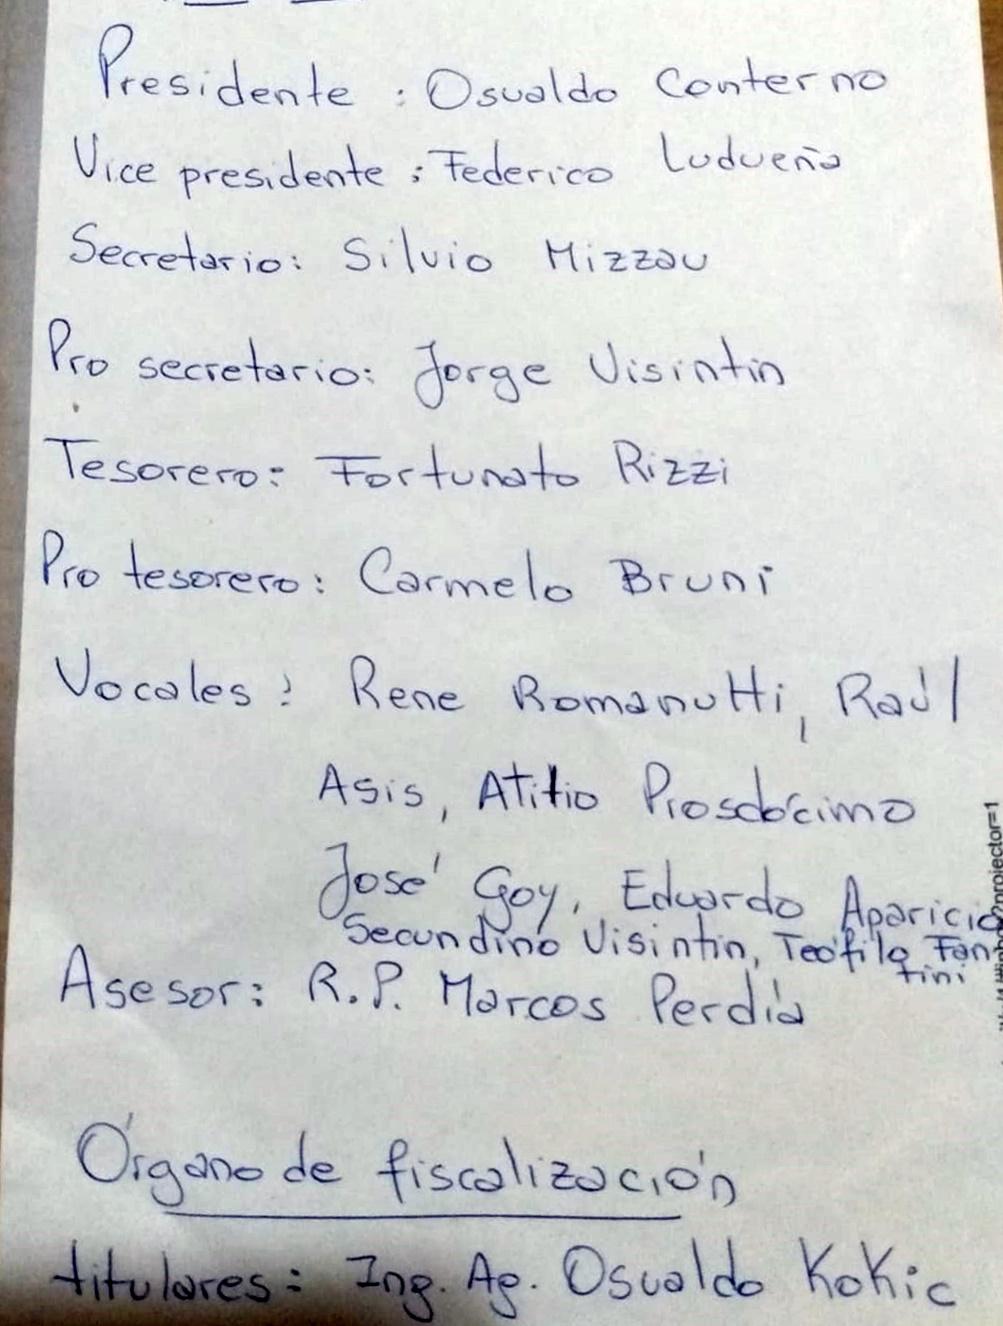 Presidente : Osvaldo Conterno
Vice presidente : Federico Ludueña
Secretario: Silvio Mizzau
Pro secretario: Jorge Visintin
Tesorero: Fortunato Rizzi
Pro tesorero: Carmelo Bruni
Vocales : Rene Romanutti, Raúl
Asis, Atitio Prosdócimo
José Goy, Eduardo Aparicio
Secundino Visintin, Teófilo Fan
tini
Asesor: R.P. Marcos Perdía
Órgano de fiscalización
titulares: Ing. Ag. Osvaldo Kokic
projector=1